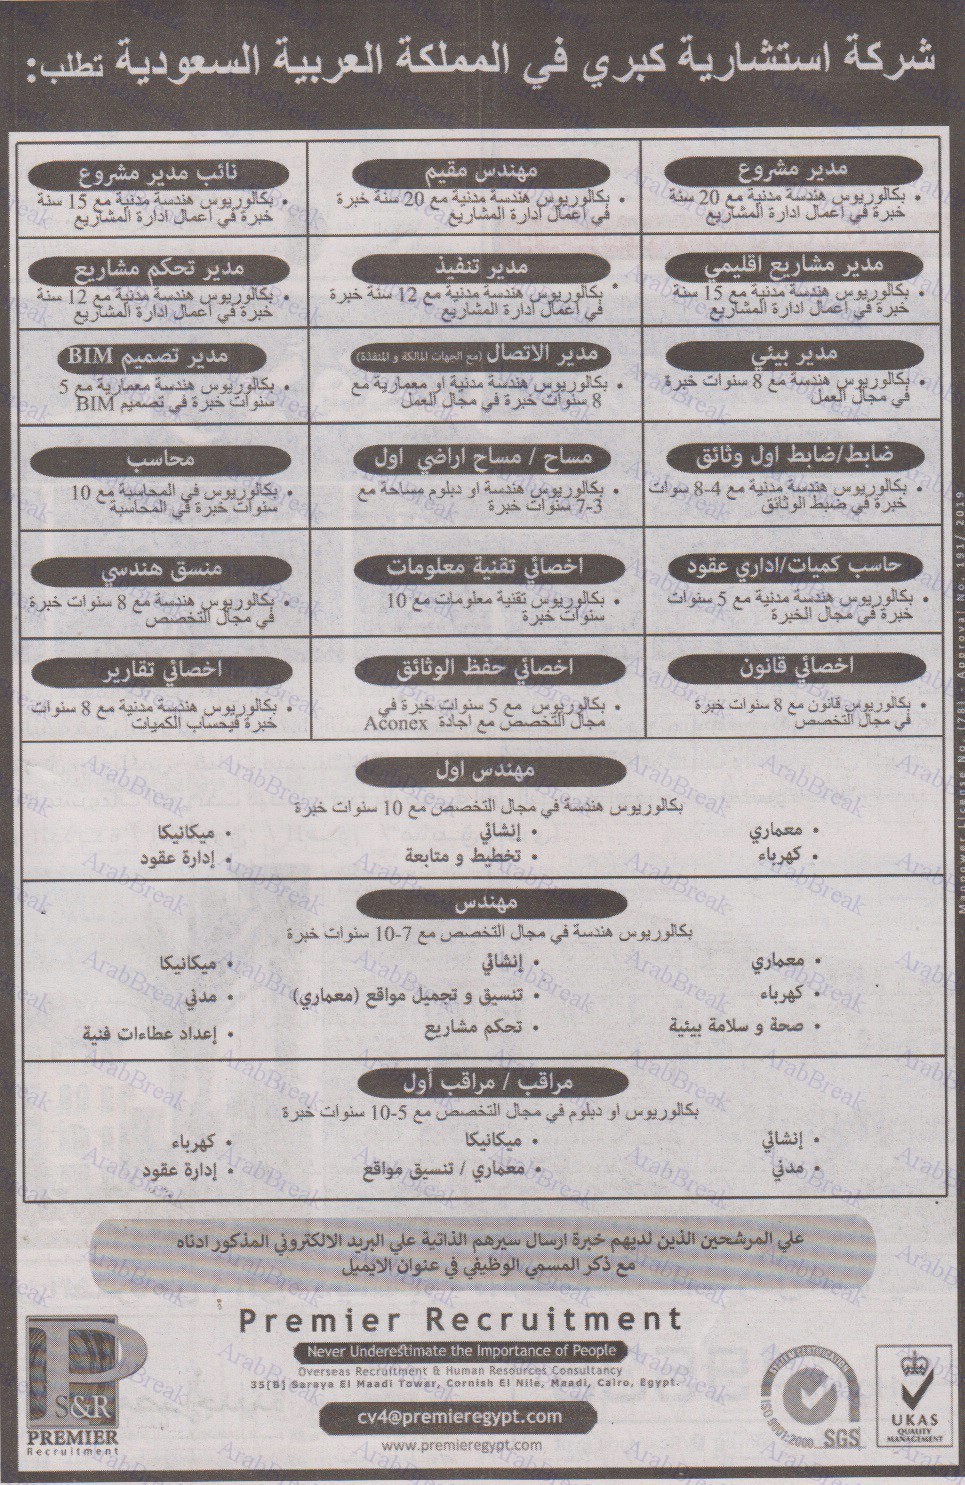 شركة استشارية كبري في المملكة العربية السعودية تطلب:
مدير مشروع
• بكالوريوس هندسة مدنية مع 20 سنة
خبرة في اعمال ادارة المشاريع
مهندس مقيم
• بكالوريوس هندسة مدنية مع 20 سنة خبرة
في اعمال ادارة المشاريع
نائب مدير مشروع
• بكالوريوس هندسة مدنية مع 15 سنة
خبرة في اعمال ادارة المشاريع
مدير مشاريع اقليمي
• بكالوريوس هندسة مدنية مع 15 سنة
خبرة في اعمال ادارة المشاريع
مدير تنفيذ
• بكالوريوس هندسة مدنية مع 12 سنة خبرة
في اعمال ادارة المشاريع
مدير تحكم مشاريع
• بكالوريوس هندسة مدنية مع 12 سنة
خبرة في اعمال ادارة المشاريع
مدير بيئي
• بكالوريوس هندسة مع 8 سنوات خبرة
في مجال العمل
مدير الاتصال (مع الجهات المالكة و المنفذة)
• بكالوريوس هندسة مدنية او معمارية مع
8 سنوات خبرة في مجال العمل
مدير تصميم BIM
• بكالوريوس هندسة معمارية مع 5
سنوات خبرة في تصميم BIM
ضابط/ضابط اول وثائق
• بكالوريوس هندسة مدنية مع 4-8 سوات
خبرة في ضبط الوثائق
مساح / مساح اراضي اول
• بكالوريوس هندسة او دبلوم مساحة مع
3-7 سنوات خبرة
محاسب
• بكالوريوس في المحاسبة مع 10
سنوات خبرة في المحاسبة
حاسب كميات/اداري عقود
• بكالوريوس هندسة مدنية مع 5 سنوات
خبرة في مجال الخبرة
اخصائي تقنية معلومات
• بكالوريوس تقنية معلومات مع 10
سنوات خبرة
منسق هندسي
• بكالوريوس هندسة مع 8 سنوات خبرة
في مجال التخصص
اخصائي قانون
• بكالوريوس قانون مع 8 سنوات خبرة
في مجال التخصص
اخصائي حفظ الوثائق
• بكالوريوس مع 5 سنوات خبرة في
مجال التخصص مع اجادة Aconex
اخصائي تقارير
• بكالوريوس هندسة مدنية مع 8 سنوات
خبرة فيحساب الكميات
مهندس اول
بكالوريوس هندسة في مجال التخصص مع 10 سنوات خبرة
• معماري • إنشائي • ميكانيكا
• كهرباء • تخطيط و متابعة • إدارة عقود
مهندس
بكالوريوس هندسة في مجال التخصص مع 7-10 سنوات خبرة
• معماري • إنشائي • ميكانيكا
• كهرباء • تنسيق و تجميل مواقع (معماري) • مدني
• صحة و سلامة بيئية • تحكم مشاريع • إعداد عطاءات فنية
مراقب / مراقب أول
بكالوريوس او دبلوم في مجال التخصص مع 5-10 سنوات خبرة
• إنشائي • ميكانيكا • كهرباء
• مدني • معماري / تنسيق مواقع • إدارة عقود
علي المرشحين الذين لديهم خبرة ارسال سيرهم الذاتية علي البريد الالكتروني المذكور ادناه
مع ذكر المسمي الوظيفي في عنوان الايميل
Premier Recruitment
Never Underestimate the Importance of People
Overseas Recruitment & Human Resources Consultancy
35[B] Saraya El Maadi Tower, Cornish El Nile, Maadi, Cairo, Egypt.
cv4@premieregypt.com
www.premieregypt.com
P
S&R
PREMIER
Recruitment
ISO 9001:2008
SGS
UKAS
QUALITY
MANAGEMENT
Manpower License No. (78) - Approval No. 191/ 2019
ArabBreak